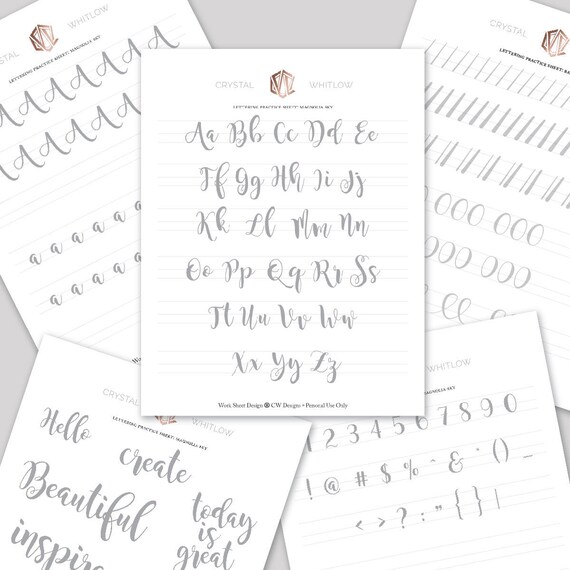 CRYSTAL WHITLOW
LETTERING PRACTICE SHEET: MAGNOLIA SET
A A A A A A
A A A A A A
a a a a a a a
a a a a a a a
CRYSTAL WHITLOW
LETTERING PRACTICE SHEET: MAGNOLIA SKY
Aa Bb Cc Dd Ee
Ff Gg Hh Ii Jj
Kk Ll Mm Nn
Oo Pp Qq Rr Ss
Tt Uu Vv Ww
Xx Yy Zz
Work Sheet Design CW Designs • Personal Use Only
CRYSTAL
LETTERING PRACTICE SHEET:
CRYSTAL WHITLOW
LETTERING PRACTICE SHEET: MAGNOLIA SKY
Hello
create
Beautiful
today
is
great
inspire
WHITLOW
MAGNOLIA SKY
1 2 3 4 5 6 7 8 9 0
! @ # $ % ^ & * ( ) _
< > ? : " { } |